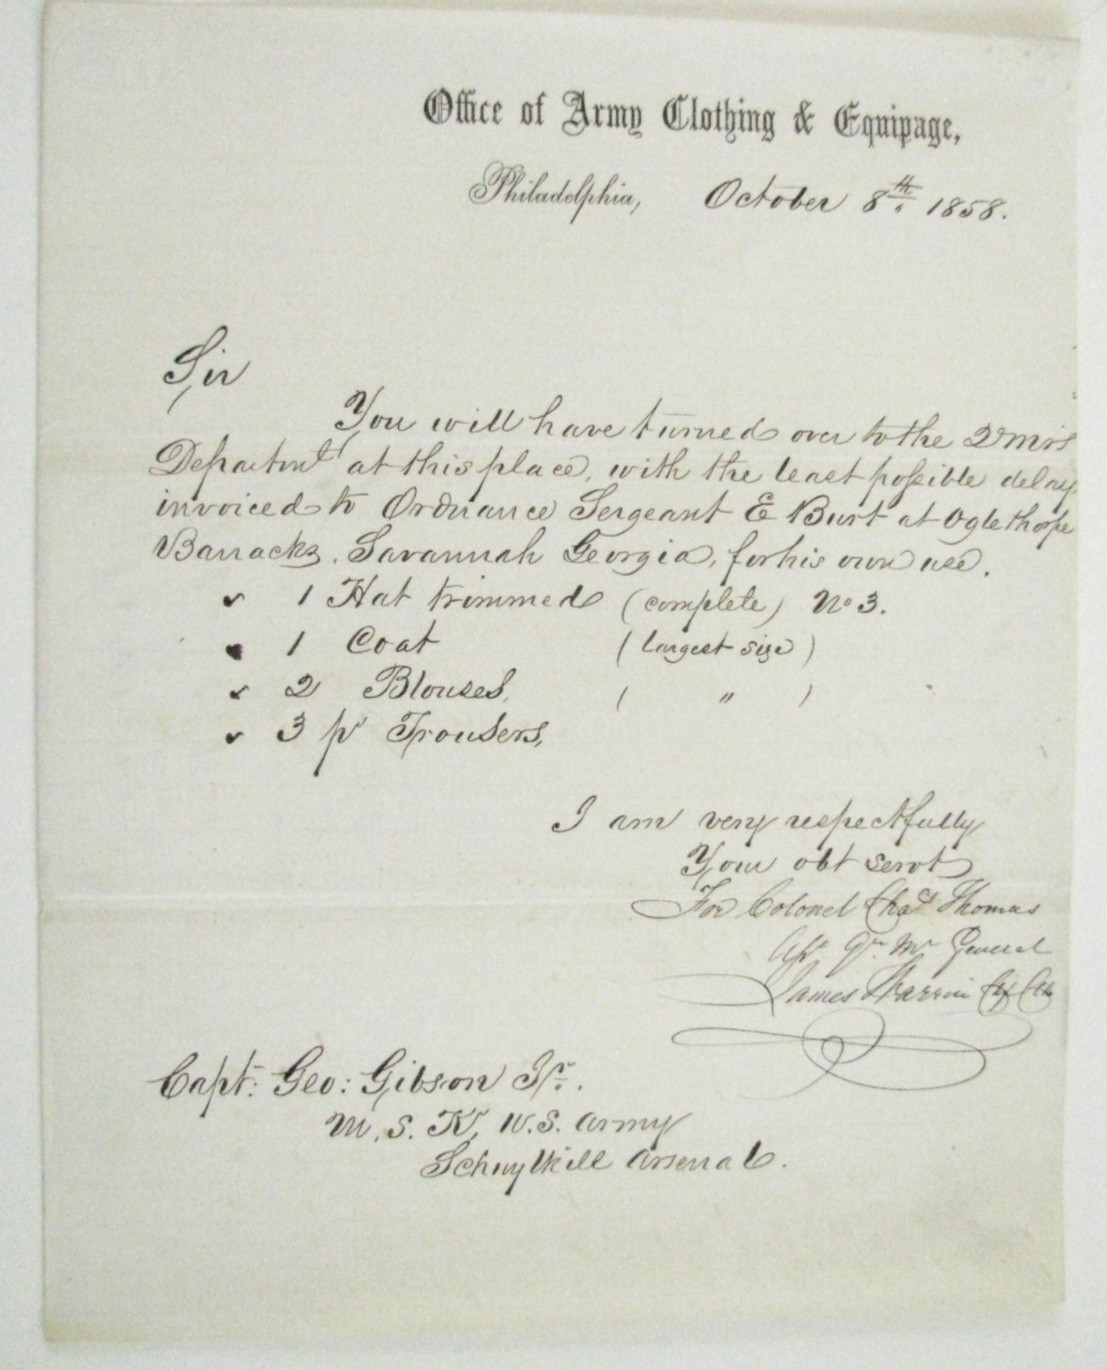 Office of Army Clothing & Equipage,
Philadelphia, October 8th 1858.
Sir
You will have turned over to the Qrmrs
Departmt at this place, with the least possible delay,
invoiced to Ordnance Sergeant E Burt at Oglethorpe
Barracks, Savannah Georgia, for his own use.
1 Hat trimmed (complete) No 3.
1 Coat (largest size)
2 Blouses, ( " )
3 pr Trousers,
I am very respectfully
Your obt servt
For Colonel Chas Thomas
Asst Qr Mr General
James
Capt: Geo: Gibson Jr.
M. S. K, U.S. Army
Schuylkill Arsenal.